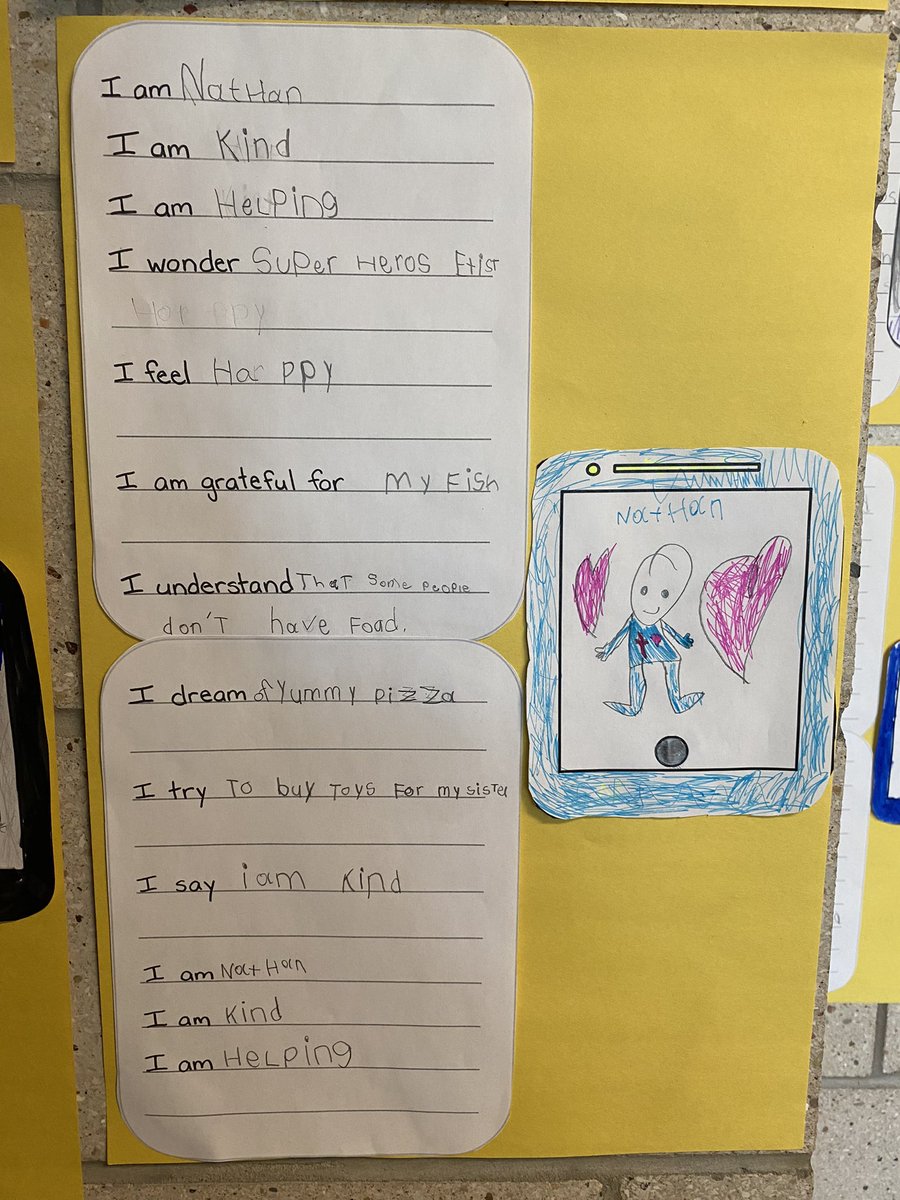 I am NatHan
I am Kind
I am HeLPing
I wonder SuPer Heros Exist
Hap ppy
I feel Hap ppy
I am grateful for my Fish
I understand That Some People
don'T have Food.
I dream of Yummy pizza
I try To buy Toys For my sister
I say i am Kind
I am NatHan
I am Kind
I am HeLPing
NatHan